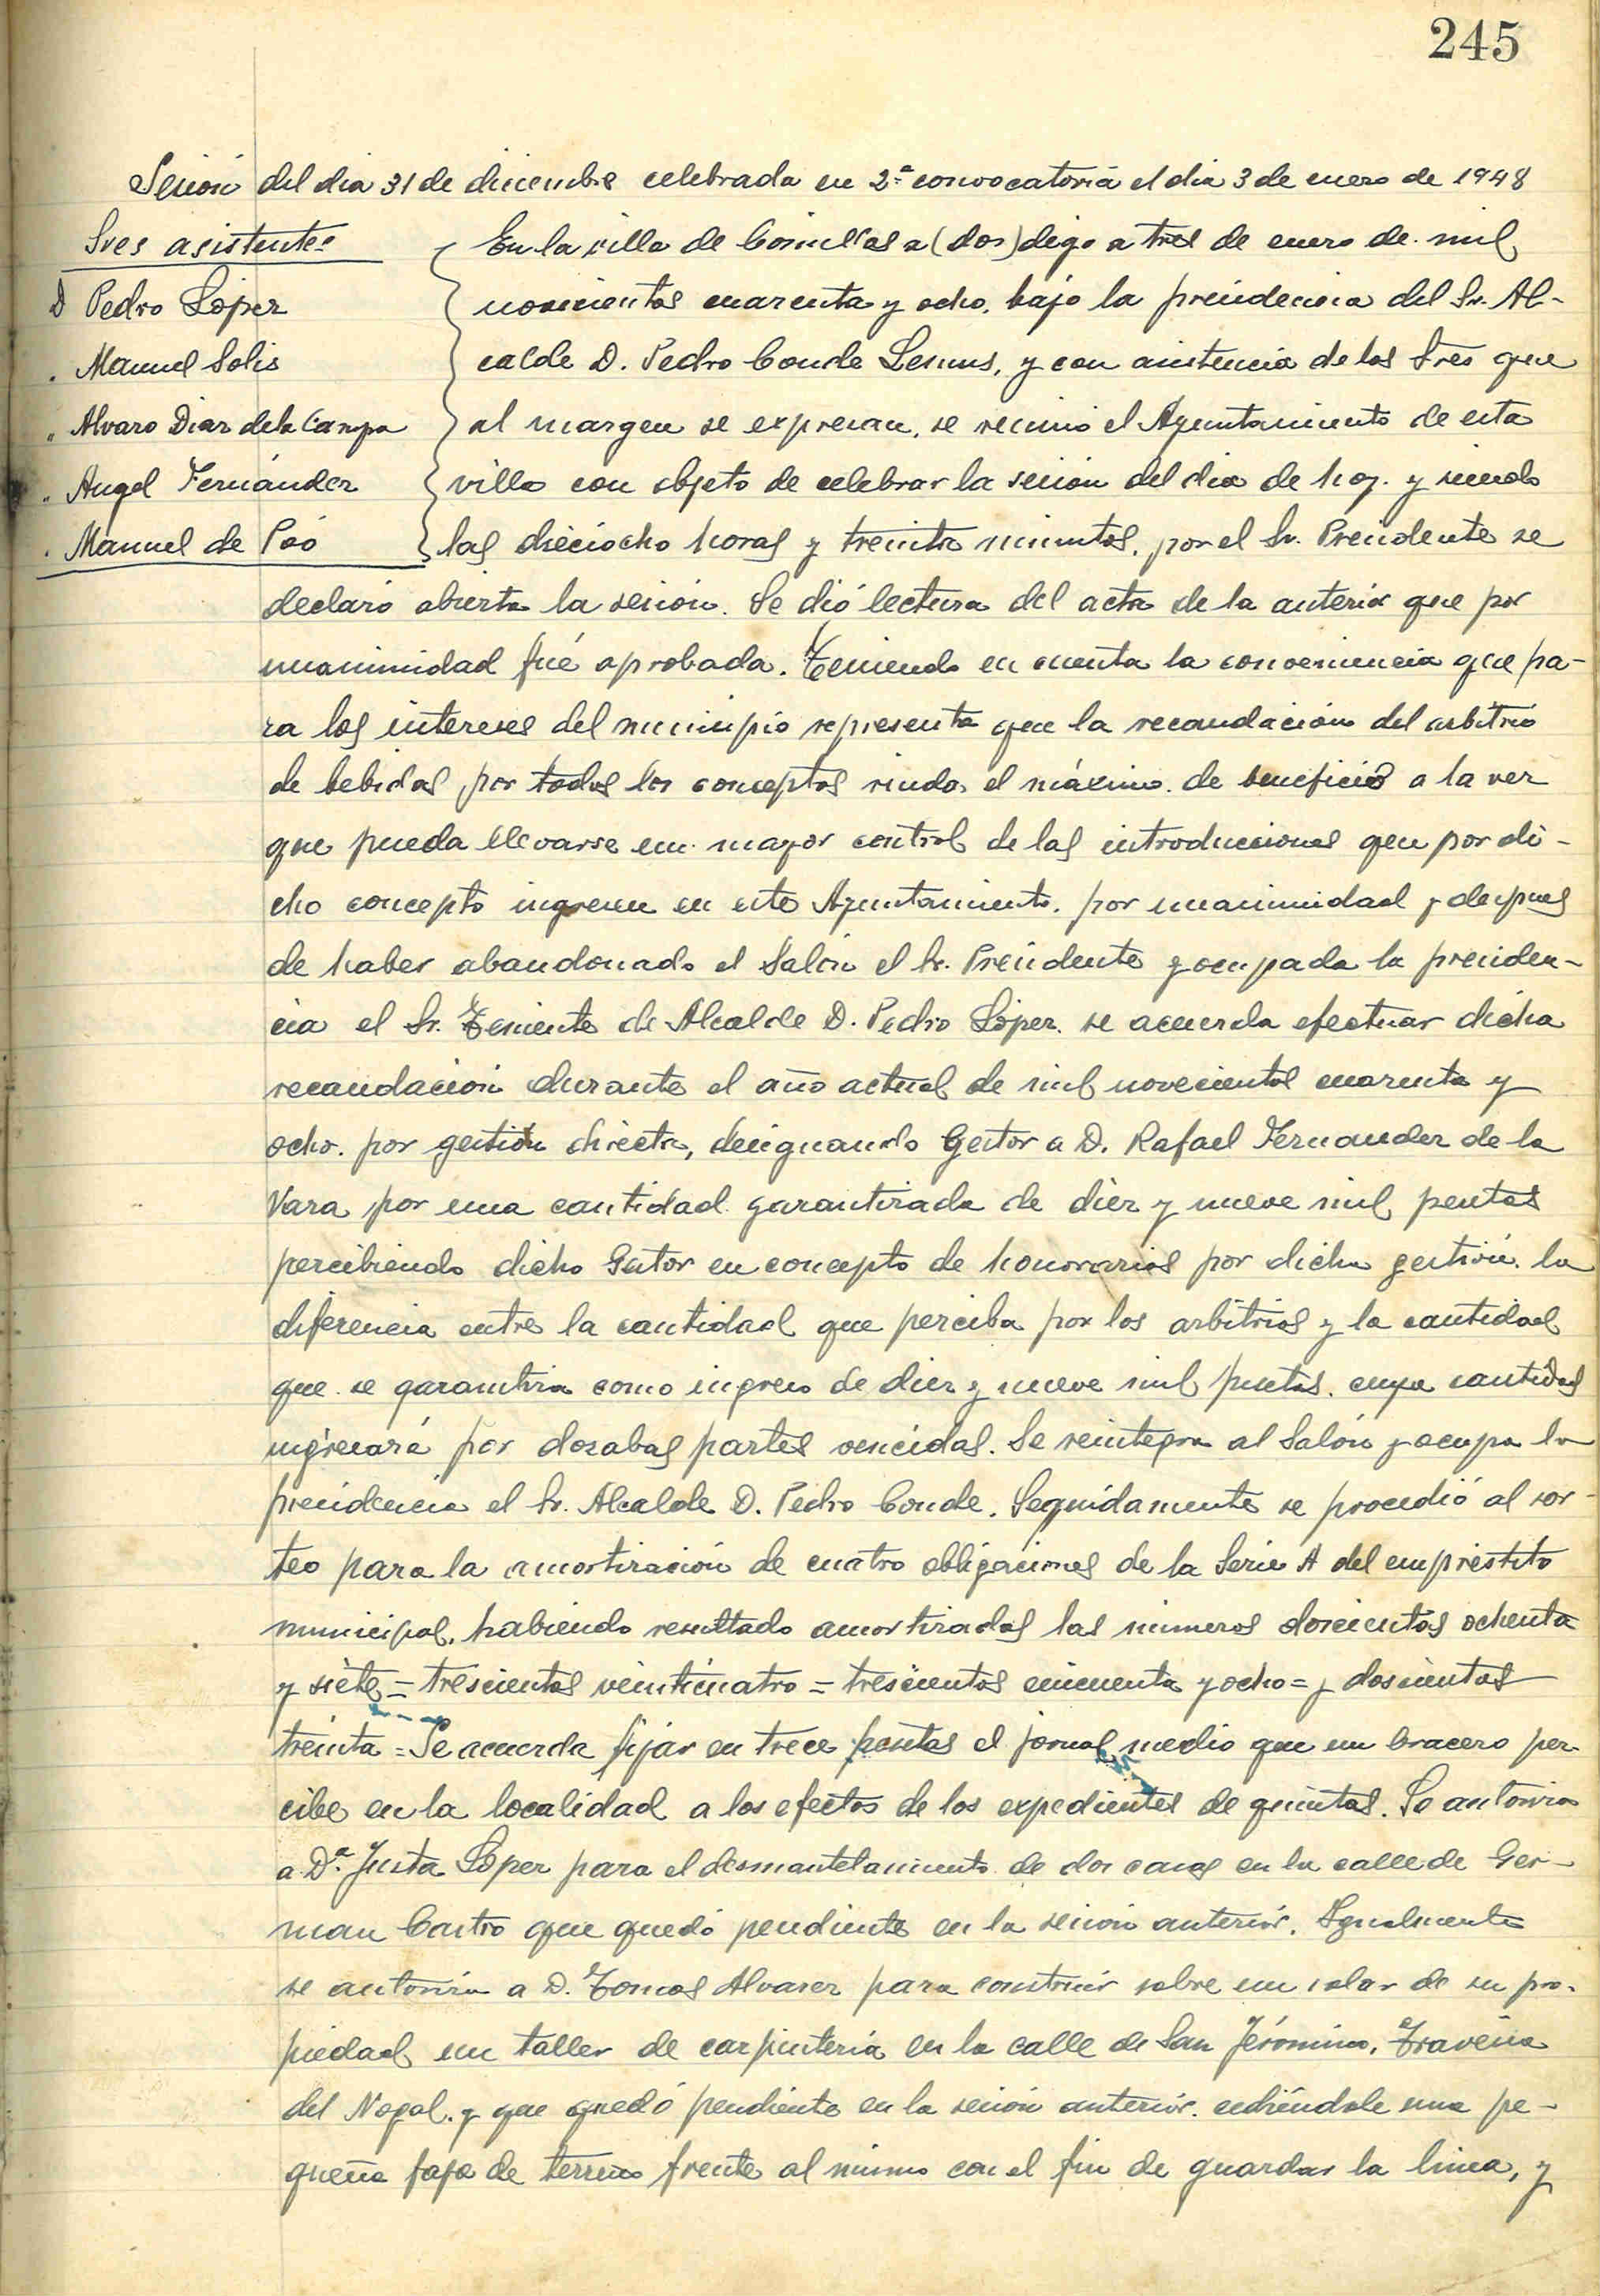 245
Sesión del dia 31 de diciembre celebrada en 2ª convocatoria el dia 3 de enero de 1948
Sres asistentes
D Pedro López
. Manuel Solis
" Alvaro Diaz de la Campa
" Angel Fernández
. Manuel de Póo
En la villa de Comillas a (dos) digo a tres de enero de mil
novecientos cuarenta y ocho. bajo la presidencia del Sr. Al-
calde D. Pedro Conde Lemus, y con asistencia de los Sres que
al margen se expresan, se reunió el Ayuntamiento de esta
villa con objeto de celebrar la sesión del dia de hoy. y siendo
las dieciocho horas y treinta minutos, por el Sr. Presidente se
declaró abierta la sesión. Se dió lectura del acta de la anterior que por
unanimidad fué aprobada. Teniendo en cuenta la conveniencia que pa-
ra los intereses del municipio representa que la recaudación del arbitrio
de bebidas por todos los conceptos rinda el máximo de beneficios a la vez
que pueda llevarse un mayor control de las introducciones que por di-
cho concepto ingresen en este Ayuntamiento. por unanimidad y despues
de haber abandonado el Salón el Sr. Presidente y ocupada la presiden-
cia el Sr. Teniente de Alcalde D. Pedro López. se acuerda efectuar dicha
recaudación durante el año actual de mil novecientos cuarenta y
ocho. por gestión directa, designando Gestor a D. Rafael Fernandez de la
Vara por una cantidad garantizada de diez y nueve mil pesetas
percibiendo dicho Gestor en concepto de honorarios por dicha gestión. la
diferencia entre la cantidad que perciba por los arbitrios y la cantidad
que se garantiza como ingreso de diez y nueve mil pesetas. cuya cantidad
ingresará por dozabas partes vencidas. Se reintegra al Salón y ocupa la
presidencia el Sr. Alcalde D. Pedro Conde. Seguidamente se procedió al sor-
teo para la amortización de cuatro obligaciones de la Serie A del emprestito
municipal, habiendo resultado amortizadas las números doscientos ochenta
y siete = trescientos veinticuatro = trescientos cincuenta y ocho = y doscientos
treinta = Se acuerda fijar en trece pesetas el jornal medio que un bracero per-
cibe en la localidad a los efectos de los expedientes de quintas. Se autoriza
a Dª. Justa López para el desmantelamiento de dos casas en la calle de Ger-
man Castro que quedó pendiente en la sesión anterior. Igualmente
se autoriza a D. Tomas Alvarez para construir sobre un solar de su pro-
piedad un taller de carpintería en la calle de San Jerónimo, Travesia
del Nogal. y que quedó pendiente en la sesión anterior. cediéndole una pe-
queña faja de terreno frente al mismo con el fin de guardar la linea, y